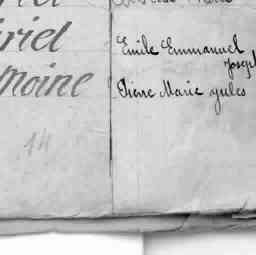 riel
Moine
14
Emile Emmanuel
Joseph
Pierre Marie yules